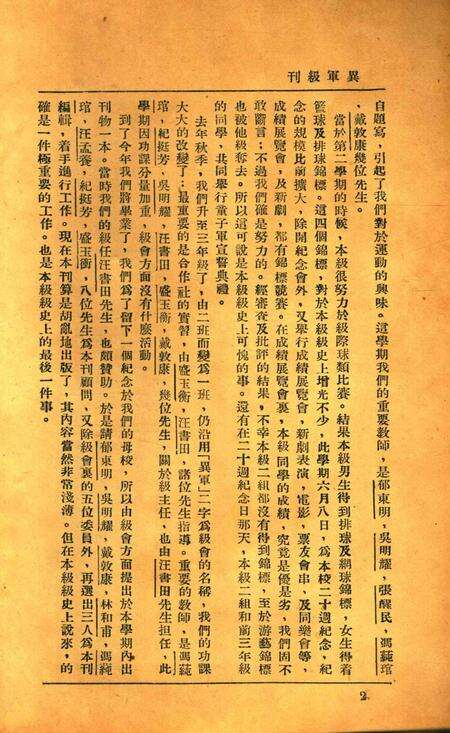 異軍級刊
自題寫，引起了我們對於運動的興味。這學期我們的重要教師，是郁東明，吳明耀，張醒民，馮蕣琯
，戴敦康幾位先生。
當於第二學期的時候，本級很努力於級際球類比賽。結果本級男生得到排球及網球錦標，女生得着
籃球及排球錦標。這四個錦標，對於本級級史上增光不少，此學期六月八日，為本校二十週紀念，紀
念的規模比前擴大，除開紀念會外，又舉行成績展覽會，新劇表演，電影，票友會串，及同樂會等，
成績展覽會，及新劇，都有錦標競賽。在成績展覽會裏，本級同學的成績，究竟是優是劣，我們固不
敢斷言；不過我們確是努力的。經審查及批評的結果，不幸本級二組都沒有得到錦標，至於游藝錦標
也被他級奪去。所以這可說是本級級史上可愧的事。還有在二十週紀念日那天，本級二組和前三年級
的同學，共同舉行童子軍宣誓典禮。
去年秋季，我們升至三年級了，由二班而變為一班，仍沿用「異軍」二字為級會的名稱，我們的功課
大大的改變了；最重要的是合作社的實習，由盛玉衡，汪書田，諸位先生指導。重要的教師，是馮蕣
琯，紀挺芳，吳明耀，汪書田，盛玉衡，戴敦康，幾位先生，關於級主任，也由汪書田先生担任，此
學期因功課分量加重，級會方面沒有什麼活動。
到了今年我們將畢業了，我們為了留下一個紀念於我們的母校，所以由級會方面提出於本學期內出
刊物一本。當時我們的級任汪書田先生，也頗贊助。於是請郁東明，吳明耀，戴敦康，林和甫，馮蕣
琯，汪孟養，紀挺芳，盛玉衡，八位先生為本刊顧問，又除級會裏的五位委員外，再選出三人為本刊
編輯，着手進行工作。現在本刊算是胡亂地出版了，其內容當然非常淺薄。但在本級級史上說來，的
確是一件極重要的工作。也是本級級史上的最後一件事。
2